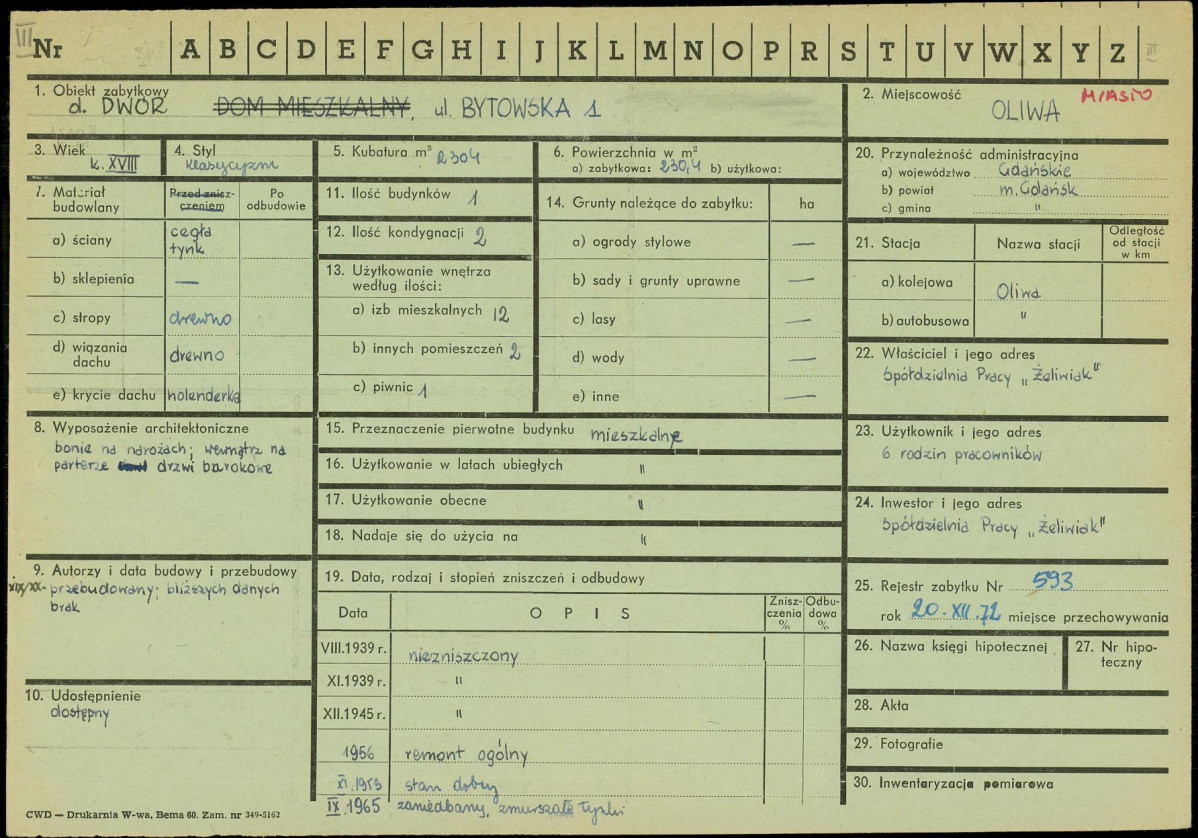 III
Nr A B C D E F G H I J K L M N O P R S T U V W X Y Z III
1. Obiekt zabytkowy
d. DWÓR DOM MIESZKALNY, ul. BYTOWSKA 1
2. Miejscowość
OLIWA MIASTO
3. Wiek
k. XVIII
4. Styl
klasycyzm
5. Kubatura m³ 2304
6. Powierzchnia w m²
a) zabytkowa: 230,4 b) użytkowa:
20. Przynależność administracyjna
a) województwo Gdańskie
b) powiat m. Gdańsk
c) gmina "
7. Materiał budowlany
Przed zniszczeniem
Po odbudowie
a) ściany cegła tynk
b) sklepienia —
c) stropy drewno
d) wiązania dachu drewno
e) krycie dachu holenderka
11. Ilość budynków 1
12. Ilość kondygnacji 2
13. Użytkowanie wnętrza
według ilości:
a) izb mieszkalnych 12
b) innych pomieszczeń 2
c) piwnic 1
14. Grunty należące do zabytku: ha
a) ogrody stylowe —
b) sady i grunty uprawne —
c) lasy —
d) wody —
e) inne —
21. Stacja Nazwa stacji Odległość od stacji w km
a) kolejowa Oliwa
b) autobusowa "
22. Właściciel i jego adres
Spółdzielnia Pracy „Żeliwiak"
8. Wyposażenie architektoniczne
bonie na narożach; wewnątrz na
parterze drzwi barokowe
15. Przeznaczenie pierwotne budynku mieszkalne
16. Użytkowanie w latach ubiegłych "
17. Użytkowanie obecne "
18. Nadaje się do użycia na "
23. Użytkownik i jego adres
6 rodzin pracowników
24. Inwestor i jego adres
Spółdzielnia Pracy „Żeliwiak"
9. Autorzy i data budowy i przebudowy
XIX/XX - przebudowany; bliższych danych
brak
10. Udostępnienie
dostępny
19. Data, rodzaj i stopień zniszczeń i odbudowy
Data OPIS Zniszczenia % Odbudowa %
VIII.1939 r. niezniszczony
XI.1939 r. "
XII.1945 r. "
1956 remont ogólny
XI.1959 stan dobry
IX.1965 zaniedbany, zmurszałe tynki
25. Rejestr zabytku Nr 593
rok 20.XII.72 miejsce przechowywania
26. Nazwa księgi hipotecznej
27. Nr hipoteczny
28. Akta
29. Fotografie
30. Inwentaryzacja pomiarowa
CWD — Drukarnia W-wa, Bema 60. Zam. nr 349-5162